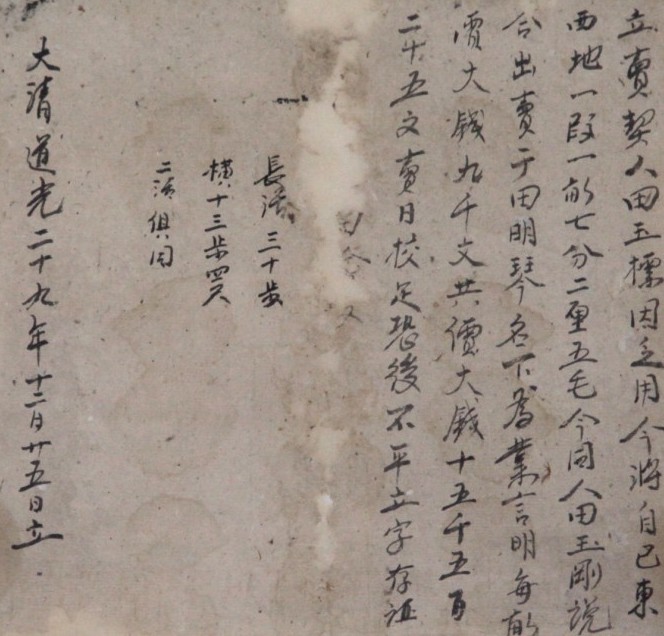 立賣契人田玉標因乏用今將自己東
西地一段一畝七分二厘五毛今同人田玉剛説
合出賣于田明琴名下為業言明每畝
價大錢九千文共價大錢十五千五百
二十五文賣日校足恐後不平立字存証
長活三十步
橫十三步四尺
二活俱同
大清道光二十九年十二月廿五日立